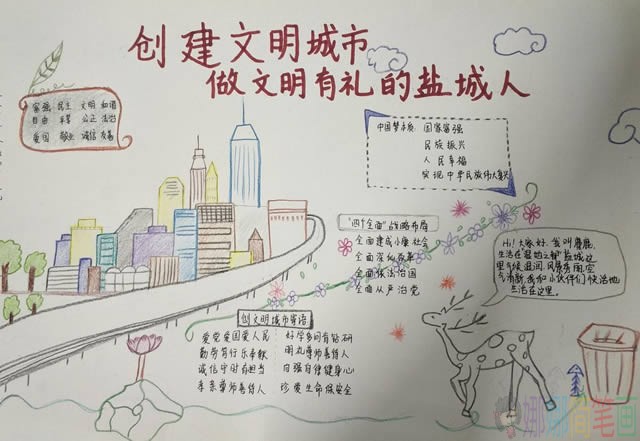 创建文明城市
做文明有礼的盐城人
富强 民主 文明 和谐
自由 平等 公正 法治
爱国 敬业 诚信 友善
中国梦本质: 国家富强
民族振兴
人民幸福
实现中华民族伟大复兴
"四个全面"战略布局
全面建成小康社会
全面深化改革
全面依法治国
全面从严治党
Hi! 大家好, 我叫麋鹿,
生活在"湿地之都"盐城,这
里气候温润,风景秀丽,空
气清新,我和小伙伴们快活地
生活在这里。
创文明城市寄语
爱党爱国爱人民
勤劳笃行乐奉献
诚信守时有担当
孝亲尊师善待人
好学多问肯钻研
明礼尊师善待人
自强自律健身心
珍爱生命保安全
简笔画